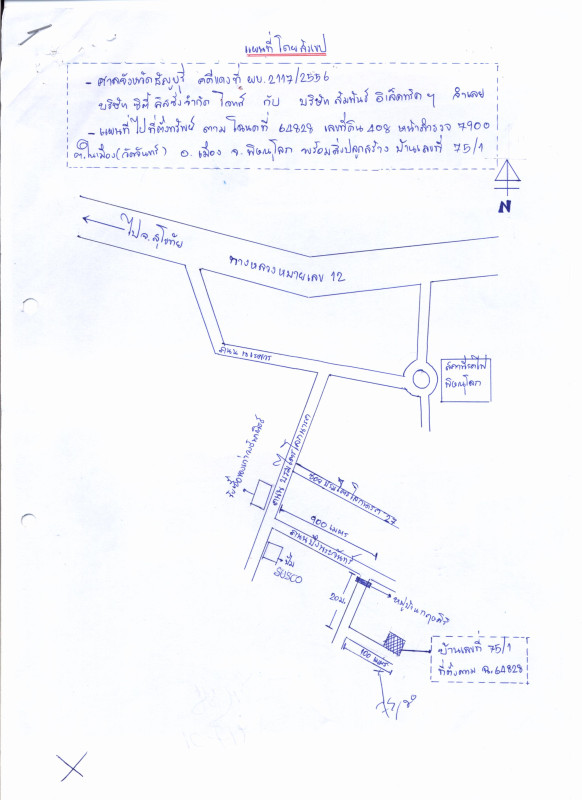 แผนที่โดยสังเขป
- ศาลจังหวัดธัญบุรี คดีแดงที่ ผบ.2117/2556
บริษัท ซิตี้ ลิสซิ่ง จำกัด โจทก์ กับ บริษัท สัมพันธ์ อิเล็คทริค ฯ จำเลย
- แผนที่ไปที่ตั้งทรัพย์ ตามโฉนดที่ 64828 เลขที่ดิน 408 หน้าสำรวจ 7900
ต.ในเมือง(วัดจันทร์) อ.เมือง จ.พิษณุโลก พร้อมสิ่งปลูกสร้าง บ้านเลขที่ 75/1
N
ไป จ.สุโขทัย
ทางหลวงหมายเลข 12
ถนน
สถานีรถไฟ
พิษณุโลก
ถนน บรมไตรโลกนารถ
ซอย บรมไตรโลกนารถ 27
900 เมตร
ถนนบึงพระจันทร์
ปั๊ม
SUSCO
20 ม.
หมู่บ้าน
100 เมตร
บ้านเลขที่ 75/1
ที่ตั้งตาม ฉ.64828